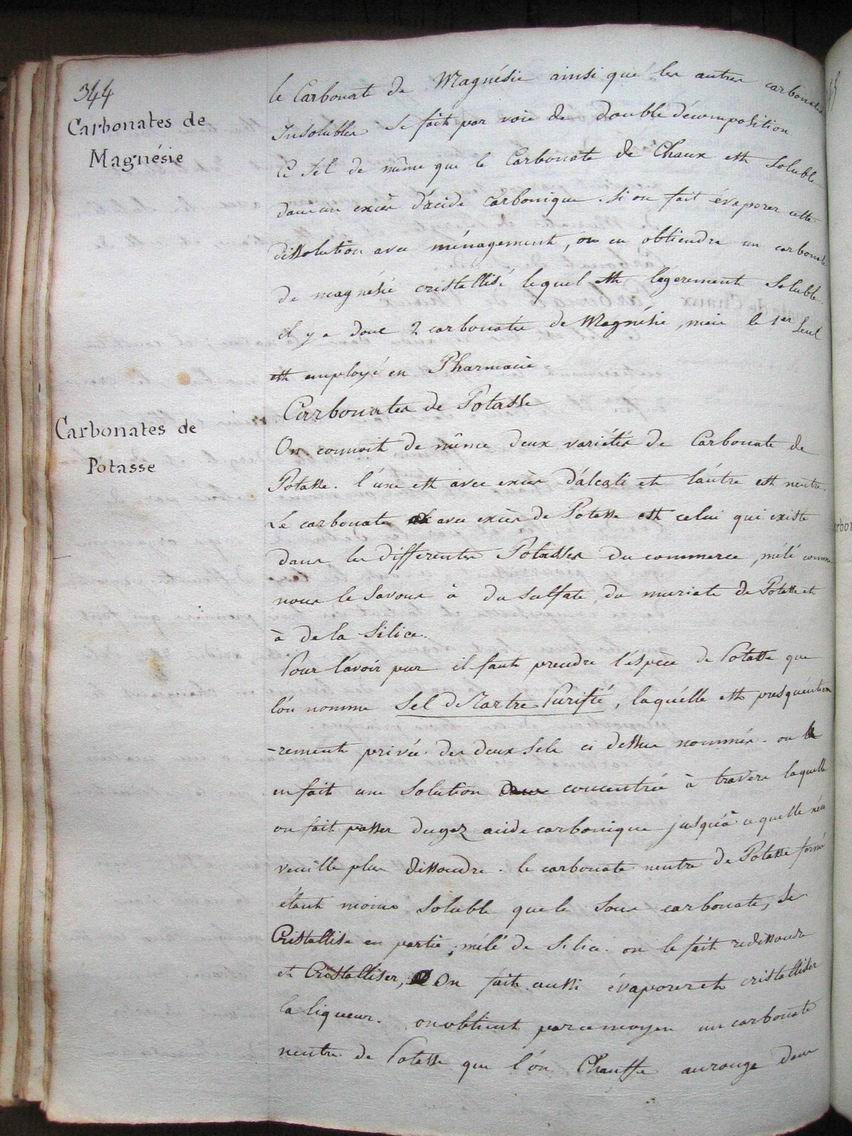 344
Carbonates de
Magnésie
le Carbonate de Magnésie ainsi que les autres carbonates
Insolubles se fait par voie de double décomposition
Ce sel de même que le Carbonate de Chaux est soluble
dans un excès d'acide carbonique. si on fait évaporer cette
dissolution avec ménagement, on en obtiendra un carbonate
de magnésie cristallisé lequel est legerement soluble.
il y a donc 2 carbonates de Magnésie, mais le 1er seul
est employé en Pharmacie
Carbonates de
Potasse
Carbonates de Potasse
On connoit de même deux variétés de Carbonate de
Potasse. l'une est avec excès d'alcali et l'autre est neutre.
Le carbonate avec excès de Potasse est celui qui existe
dans les differentes Potasses du commerce, mêlé comme
nous le savons à du sulfate, du muriate de Potasse et
à de la silice.
Pour l'avoir pur il faut prendre l'espèce de Potasse que
l'on nomme Sel de Tartre Purifié, laquelle est presqu'entie
-rement privée des deux sels ci dessus nommés. on
en fait une solution concentrée à travers laquelle
on fait passer du gaz acide carbonique jusqu'à ce quelle n'en
veuille plus dissoudre. le carbonate neutre de Potasse formé
étant moins soluble que le sous carbonate, se
Cristallise en partie, mêlé de silice. on le fait redissoudre
et Cristalliser, On fait aussi évaporer et cristalliser
la liqueur. on obtient par ce moyen un carbonate
neutre de Potasse que l'on Chauffe au rouge dans